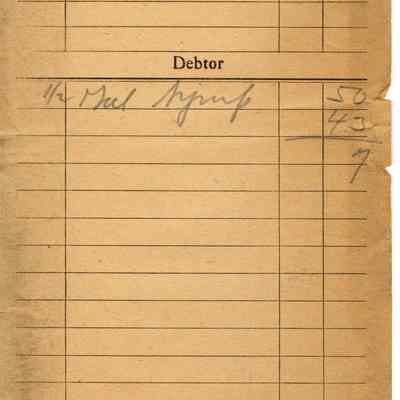 Debtor
1/2 Gal Syrup 50
43
7